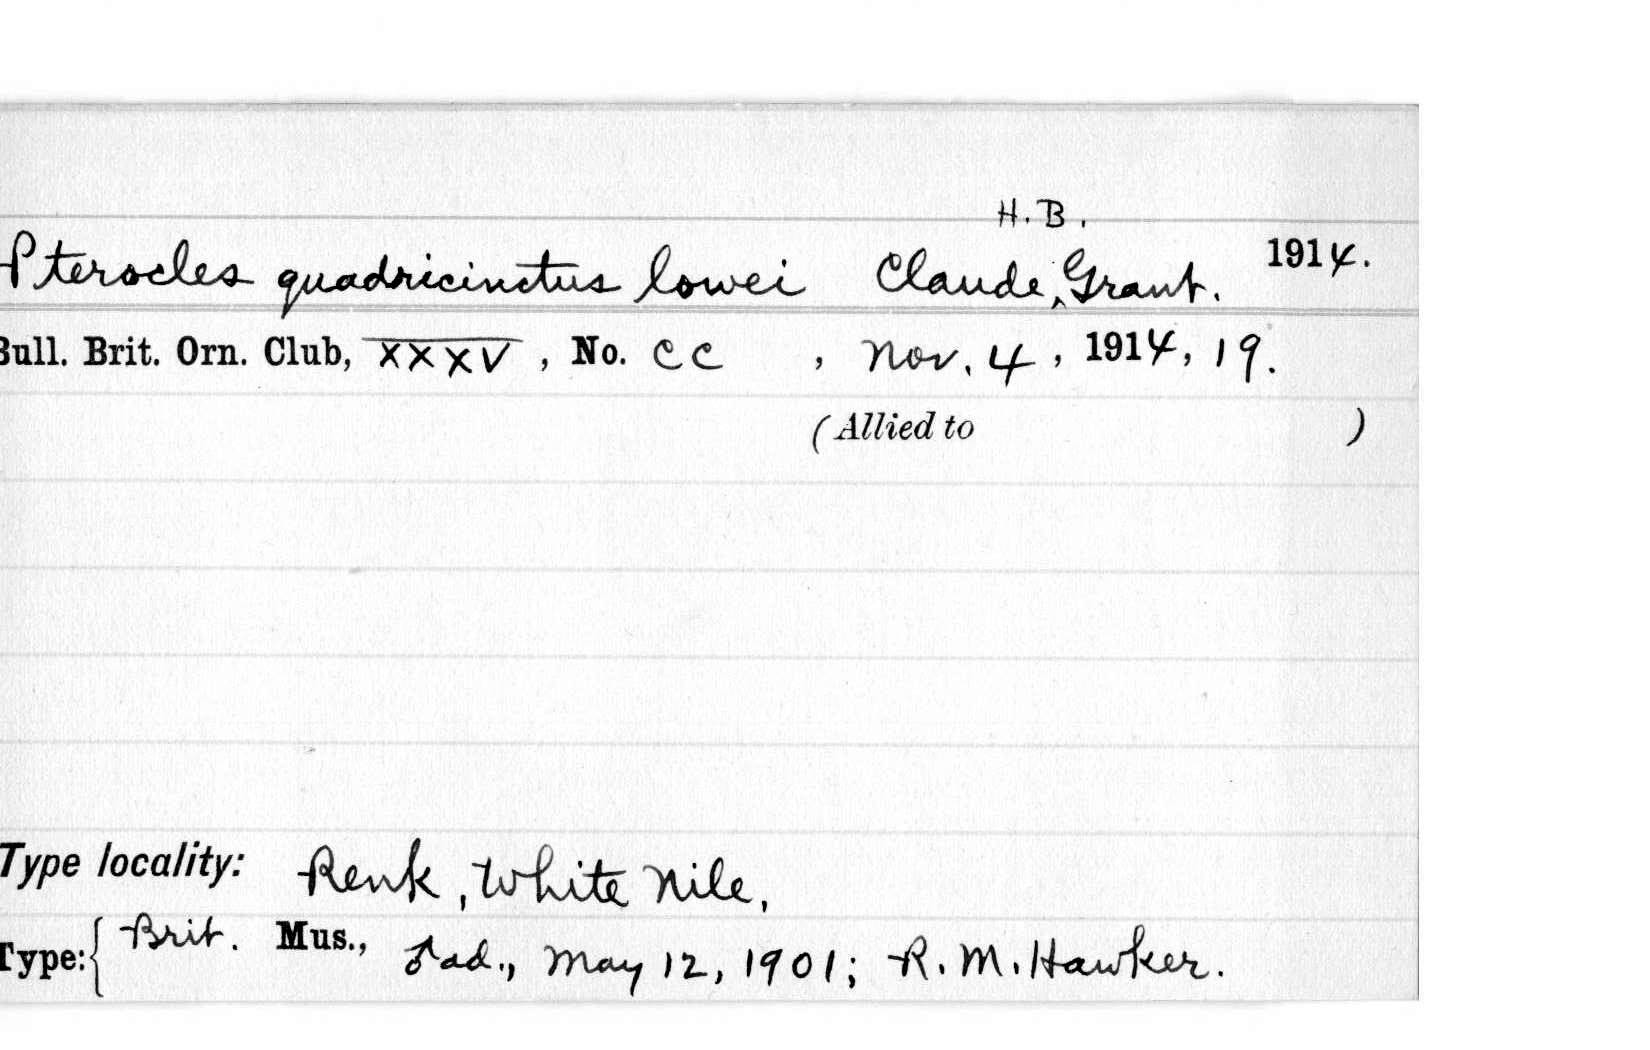 H. B.
Pterocles quadricinctus lowei Claude ^ Grant. 1914.
Bull. Brit. Orn. Club, XXXV, No. CC, Nov. 4, 1914, 19.
(Allied to )
Type locality: Renk, White Nile,
Type: { Brit. Mus., ♂ ad., May 12, 1901; R. M. Hawker.